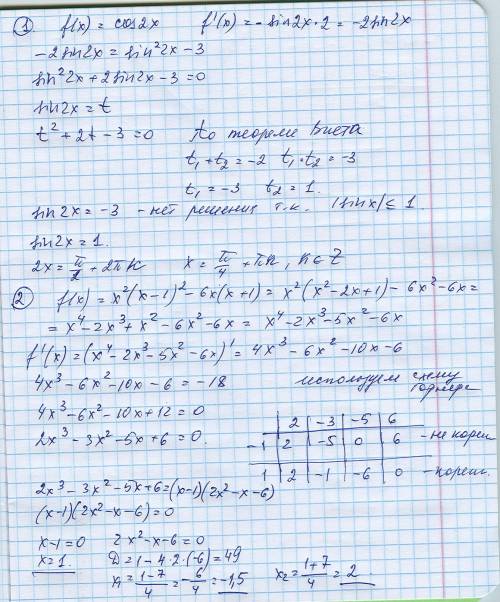 ① f(x) = cos2x f'(x) = - sin2x·2 = -2sin2x
-2sin2x = sin²2x - 3
sin²2x + 2sin2x - 3 = 0
sin2x = t
t² + 2t - 3 = 0 По теореме Виета
t₁ + t₂ = -2 t₁·t₂ = -3
t₁ = -3 t₂ = 1.
sin2x = -3 - нет решения т.к. |sinx| ≤ 1.
sin2x = 1.
2x = π/2 + 2πk x = π/4 + πk, k∈Z
② f(x) = x²(x-1)² - 6x(x+1) = x²(x²-2x+1) - 6x²-6x =
= x⁴-2x³+x²-6x²-6x = x⁴-2x³-5x²-6x
f'(x) = (x⁴-2x³-5x²-6x)' = 4x³-6x²-10x-6
4x³-6x²-10x-6 = -18 используем схему Горнера
4x³-6x²-10x+12 = 0
2x³-3x²-5x+6 = 0.
2 | -3 | -5 | 6
-1 | 2 | -5 | 0 | 6 - не корен
1 | 2 | -1 | -6 | 0 - корень.
2x³-3x²-5x+6 = (x-1)(2x²-x-6)
(x-1)(2x²-x-6) = 0
x-1=0 2x²-x-6=0
x=1. D = 1-4·2·(-6) = 49
x₁ = (1-7)/4 = -6/4 = -1,5 x₂ = (1+7)/4 = 2